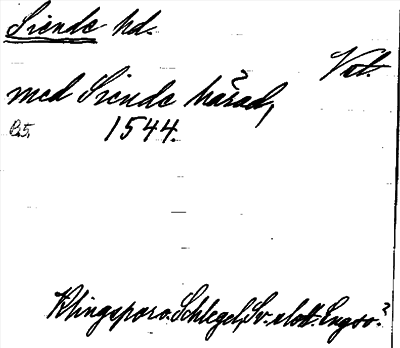 Siende hd.
Vstl.
med Siende härad,
C.5. 1544.
Klingspor o. Schlegel, Sv. slott. Engsö.